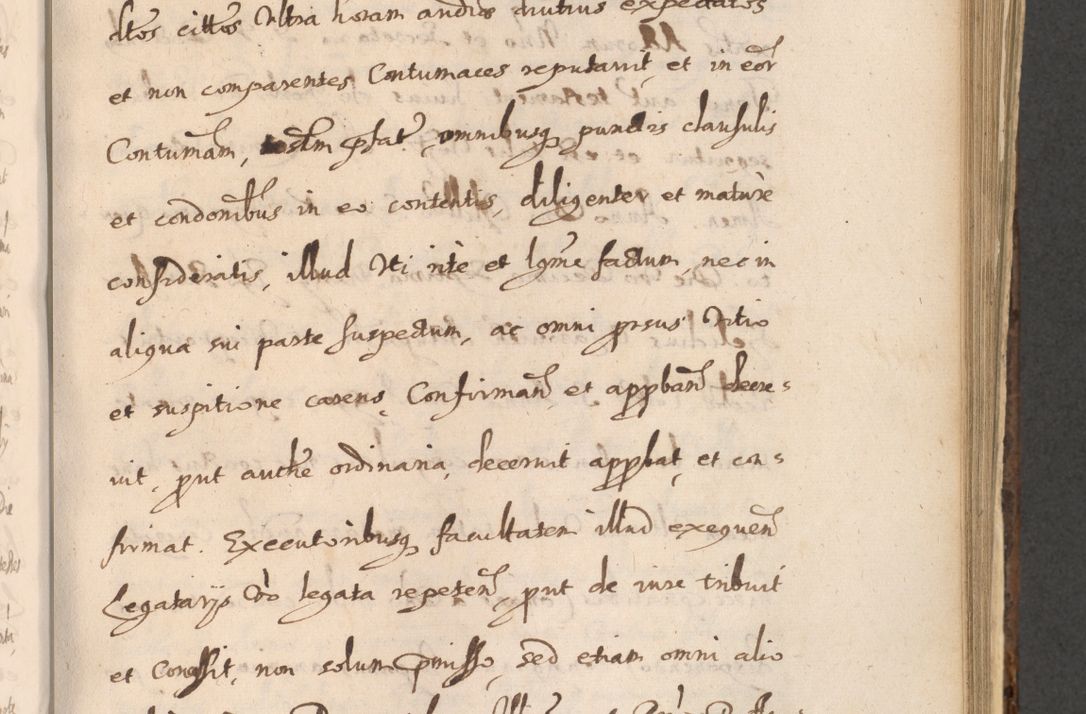 dtos cittos Ultra horam audiæ diutius expectatos
et non comparentes Contumaces reputavit, et in eor
Contumam, testm pstat, omnibusq punctis clausulis
et condonibus in eo contentis, diligenter et mature
consideratis, illud Uti rite et lgme factum, nec in
aliqua sui parte suspectum, ac omni prsus Vitio
et suspitione carens, Confirmand et appband decre=
vit, prut authe ordinaria, decernit appbat, et con=
firmat. Executoribusq facultatem illud exequend
Legatarijs Vo legata repetend, prut de iure tribuit
et Concessit, non solum pmisso, sed etiam omni alio